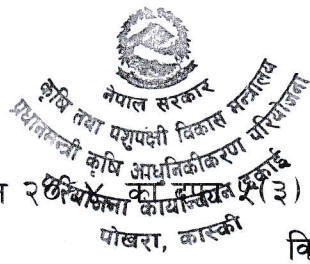 नेपाल सरकार
कृषि तथा पशुपंक्षी विकास मन्त्रालय
प्रधानमन्त्री कृषि आधुनिकीकरण परियोजना
परियोजना कार्यान्वयन इकाई
(३)
पोखरा, कास्की
वि